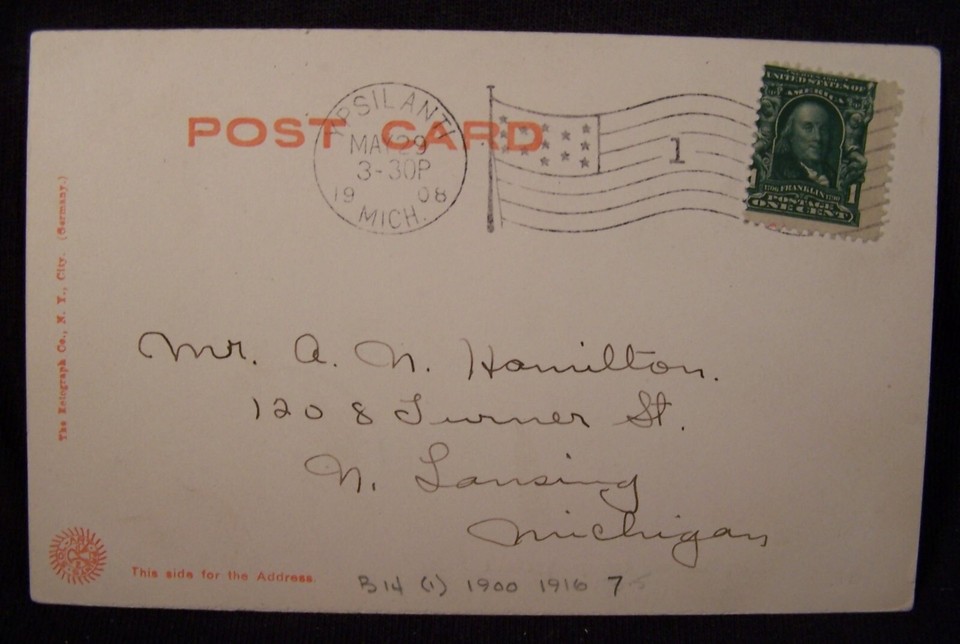 POST CARD
YPSILANTI
MAY 29
3-30P
19 08
MICH.
1
UNITED STATES OF
AMERICA
1706 FRANKLIN 1790
1 1
POSTAGE
ONE CENT
The Rotograph Co., N. Y., City. (Germany.)
Mr. A. N. Hamilton.
1208 Turner St.
N. Lansing
Michigan
This side for the Address.
B14 (1) 1900 1916 7